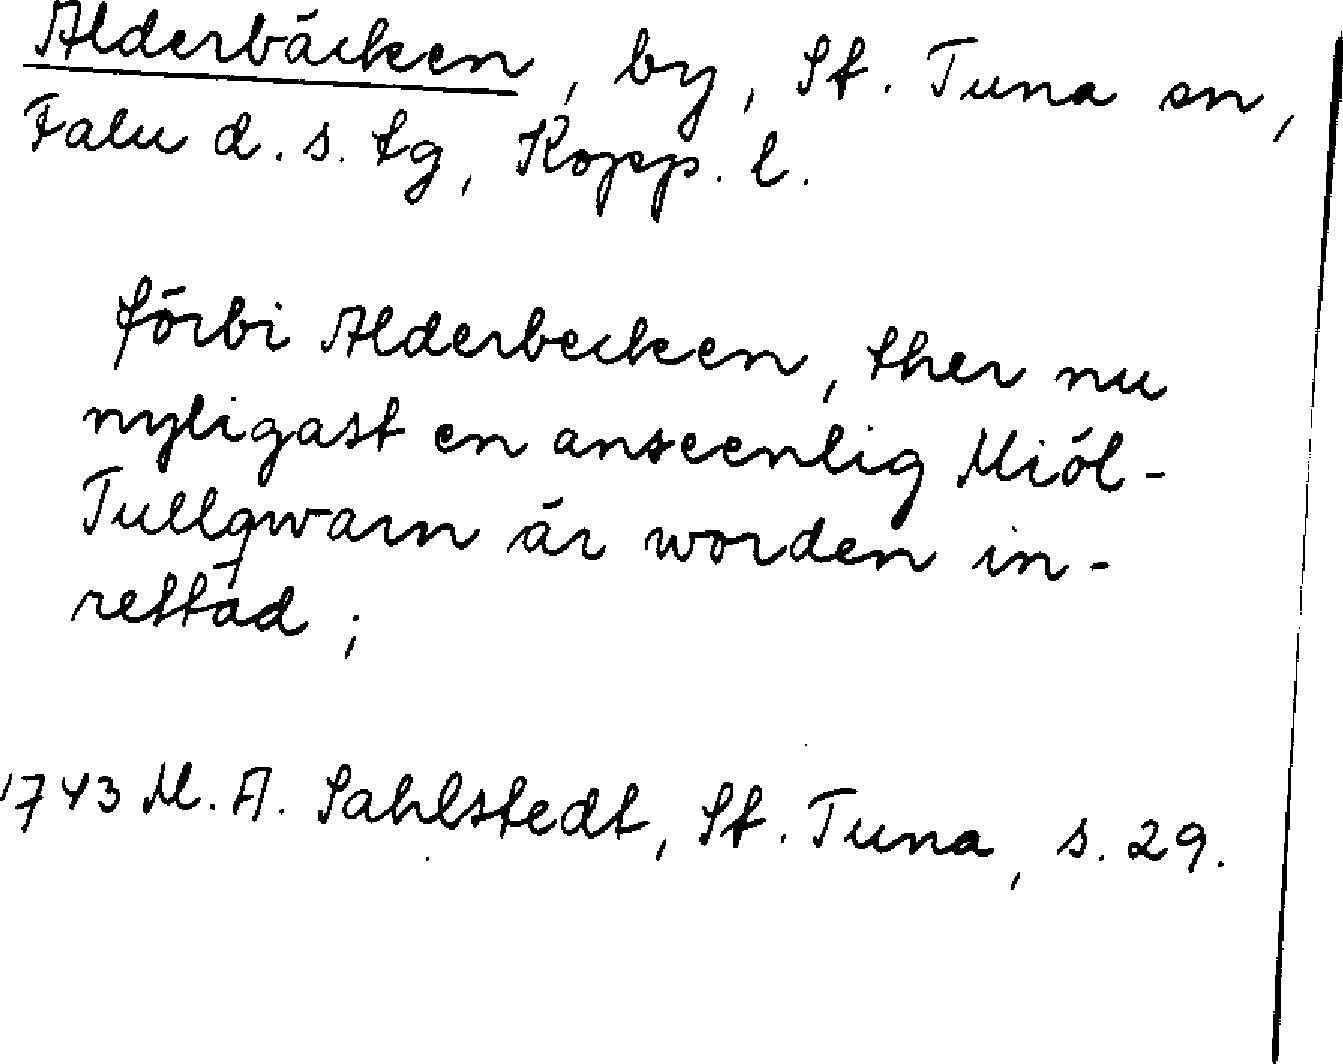 Alderbäcken, by, St. Tuna sn,
Falu d. s. tg, Kopp. l.
förbi Alderbecken, ther nu
nyligast en anseenlig Miöl-
Tullqwarn är worden in-
rettad;
1743 M. A. Sahlstedt, St. Tuna, s. 29.